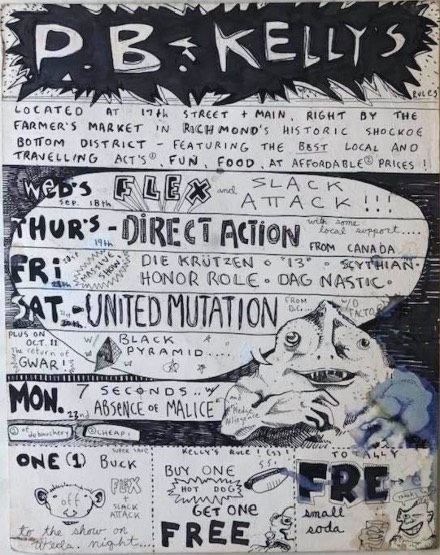 P.B. KELLY'S
RULES
LOCATED AT 17th STREET + MAIN, RIGHT BY THE
FARMER'S MARKET IN RICHMOND'S HISTORIC SHOCKOE
BOTTOM DISTRICT - FEATURING THE BEST LOCAL AND
TRAVELLING ACT'S①, FUN, FOOD, AT AFFORDABLE② PRICES!
WED'S FLEX and SLACK
sep. 18th ATTACK!!!
THUR'S - DIRECT ACTION with some
local support....
19th FROM CANADA
FRI DIE KRÜTZEN • "13" • SCYTHIAN •
HONOR ROLE • DAG NASTIC •
SAT. - UNITED MUTATION FROM
D.C. W/O
FACTOR
PLUS ON
OCT. 11
The return of
GWAR!
W/ BLACK
PYRAMID....
MON. 7 SECONDS... W/
23rd ABSENCE OF MALICE
① of debauchery ② CHEAP!
ONE (1) BUCK
off
FLEX
SLACK
ATTACK
to the show on
Weds. night...
KELLY'S RULE!
BUY ONE
HOT DOG
GET ONE
FREE
TOTALLY
FREE
small
soda